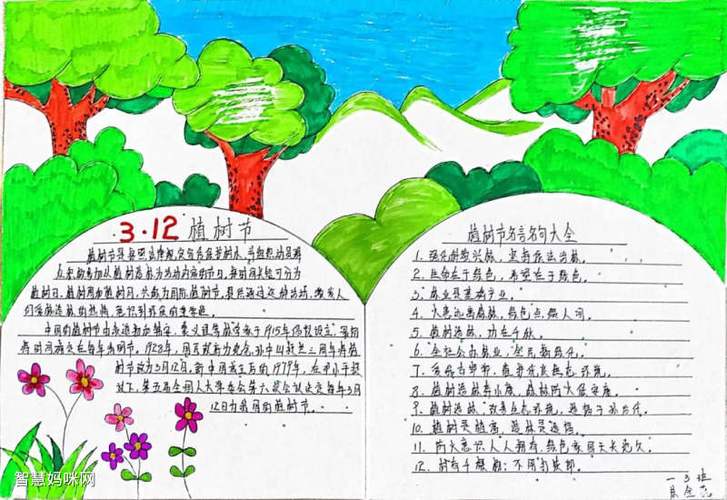 3.12 植树节
植树节是按照法律规定宣传保护树木，并组织动员群
众积极参加以植树造林为活动内容的节日。按时间长短可分为
植树日、植树周和植树月，共称为国际植树节。提倡通过这种活动，激发人
们爱林造林的热情、意识到环保的重要性。
中国的植树节由凌道扬和韩安、裴义理等林学家于1915年倡议设立，最初
将时间确定在每年清明节。1928年，国民政府为纪念孙中山逝世三周年，将植
树节改为3月12日。新中国成立后的1979年，在邓小平提
议下，第五届全国人大常委会第六次会议决定每年3月
12日为我国的植树节。
植树节名言名句大全
1. 强化科教兴林，坚持依法治林。
2. 生命在于绿色，希望在于绿色。
3. 林业是基础产业。
4. 火患远离森林，绿色点缀人间。
5. 植树造林，功在千秋。
6. 全社会办林业，全民搞绿化。
7. 爱鸟为中华，保护优良生态环境。
8. 植树造林奔小康，毁林开火保安康。
9. 植树造林，改善生态环境，造福子孙后代。
10. 植树是植富，造林是造福。
11. 防火意识人人拥有，绿色家园天长地久。
12. 树有千般，不用却成郎。
一3班
智慧妈咪网